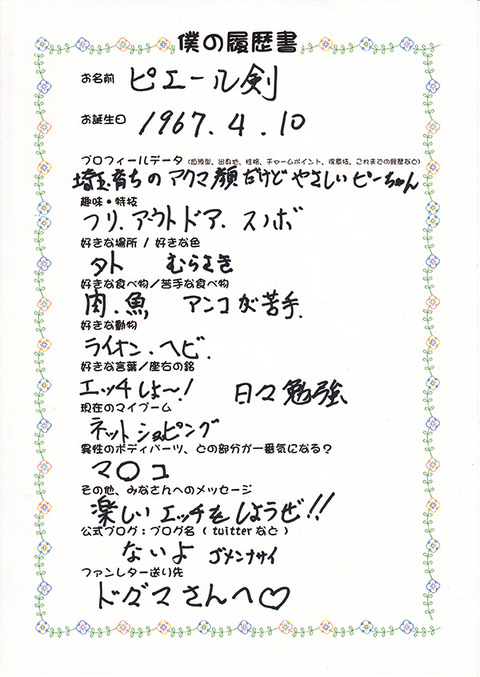 僕の履歴書
お名前 ピエール剣
お誕生日 1967.4.10
プロフィールデータ(血液型、出身地、性格、チャームポイント、得意技、これまでの経歴など)
埼玉育ちのアクマ顔だけどやさしいピーちゃん
趣味・特技
フリ.アウトドア.スノボ
好きな場所 / 好きな色
外 むらさき
好きな食べ物/苦手な食べ物
肉.魚 アンコが苦手.
好きな動物
ライオン.ヘビ.
好きな言葉/座右の銘
エッチしよ〜! 日々勉強
現在のマイブーム
ネットショッピング
異性のボディパーツ、どの部分が一番気になる?
マ〇コ
その他、みなさんへのメッセージ
楽しいエッチをしようぜ!!
公式ブログ:ブログ名 ( tuitterなど )
ないよ ゴメンナサイ
ファンレター送り先
ドグマさんへ♡